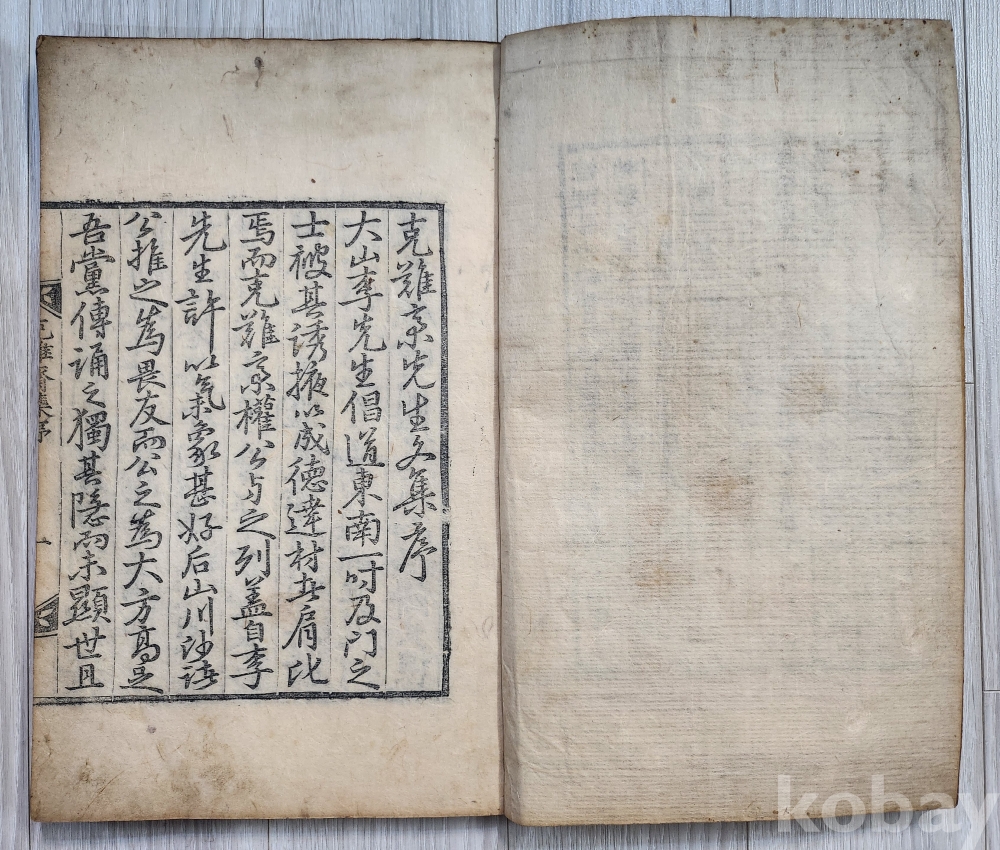 克難齋先生文集序
大山李先生倡道東南一时及門之
士被其誘掖以成德達材者肩比
焉而克難齋權公与之列盖自李
先生許以氣象甚好后山川沙諸
公推之爲畏友而公之爲大方高足
吾黨傳誦之獨其隱而未顯世且
克難齋集序 一
kobay